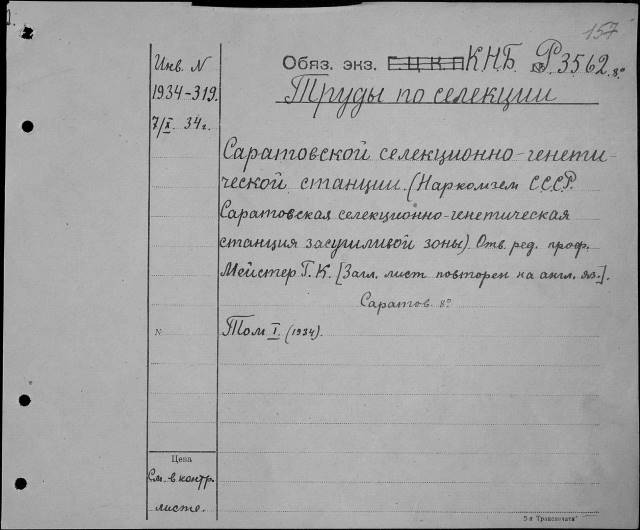 157
Обяз. экз. Г.Ц.К.П К.Н.Б. № Р3562 8°
Труды по селекции
Инв. N
1934-319.
7/X. 34 г.
Саратовской селекционно-генети-
ческой станции. (Наркомзем С.С.С.Р.
Саратовская селекционно-генетическая
станция засушливой зоны). Отв. ред. проф.
Мейстер Г. К. [Загл. лист повторен на англ. яз.].
Саратов. 8°
N
Том I. (1934).
Цена
См. в контр.
листе.
5-я Транспечати